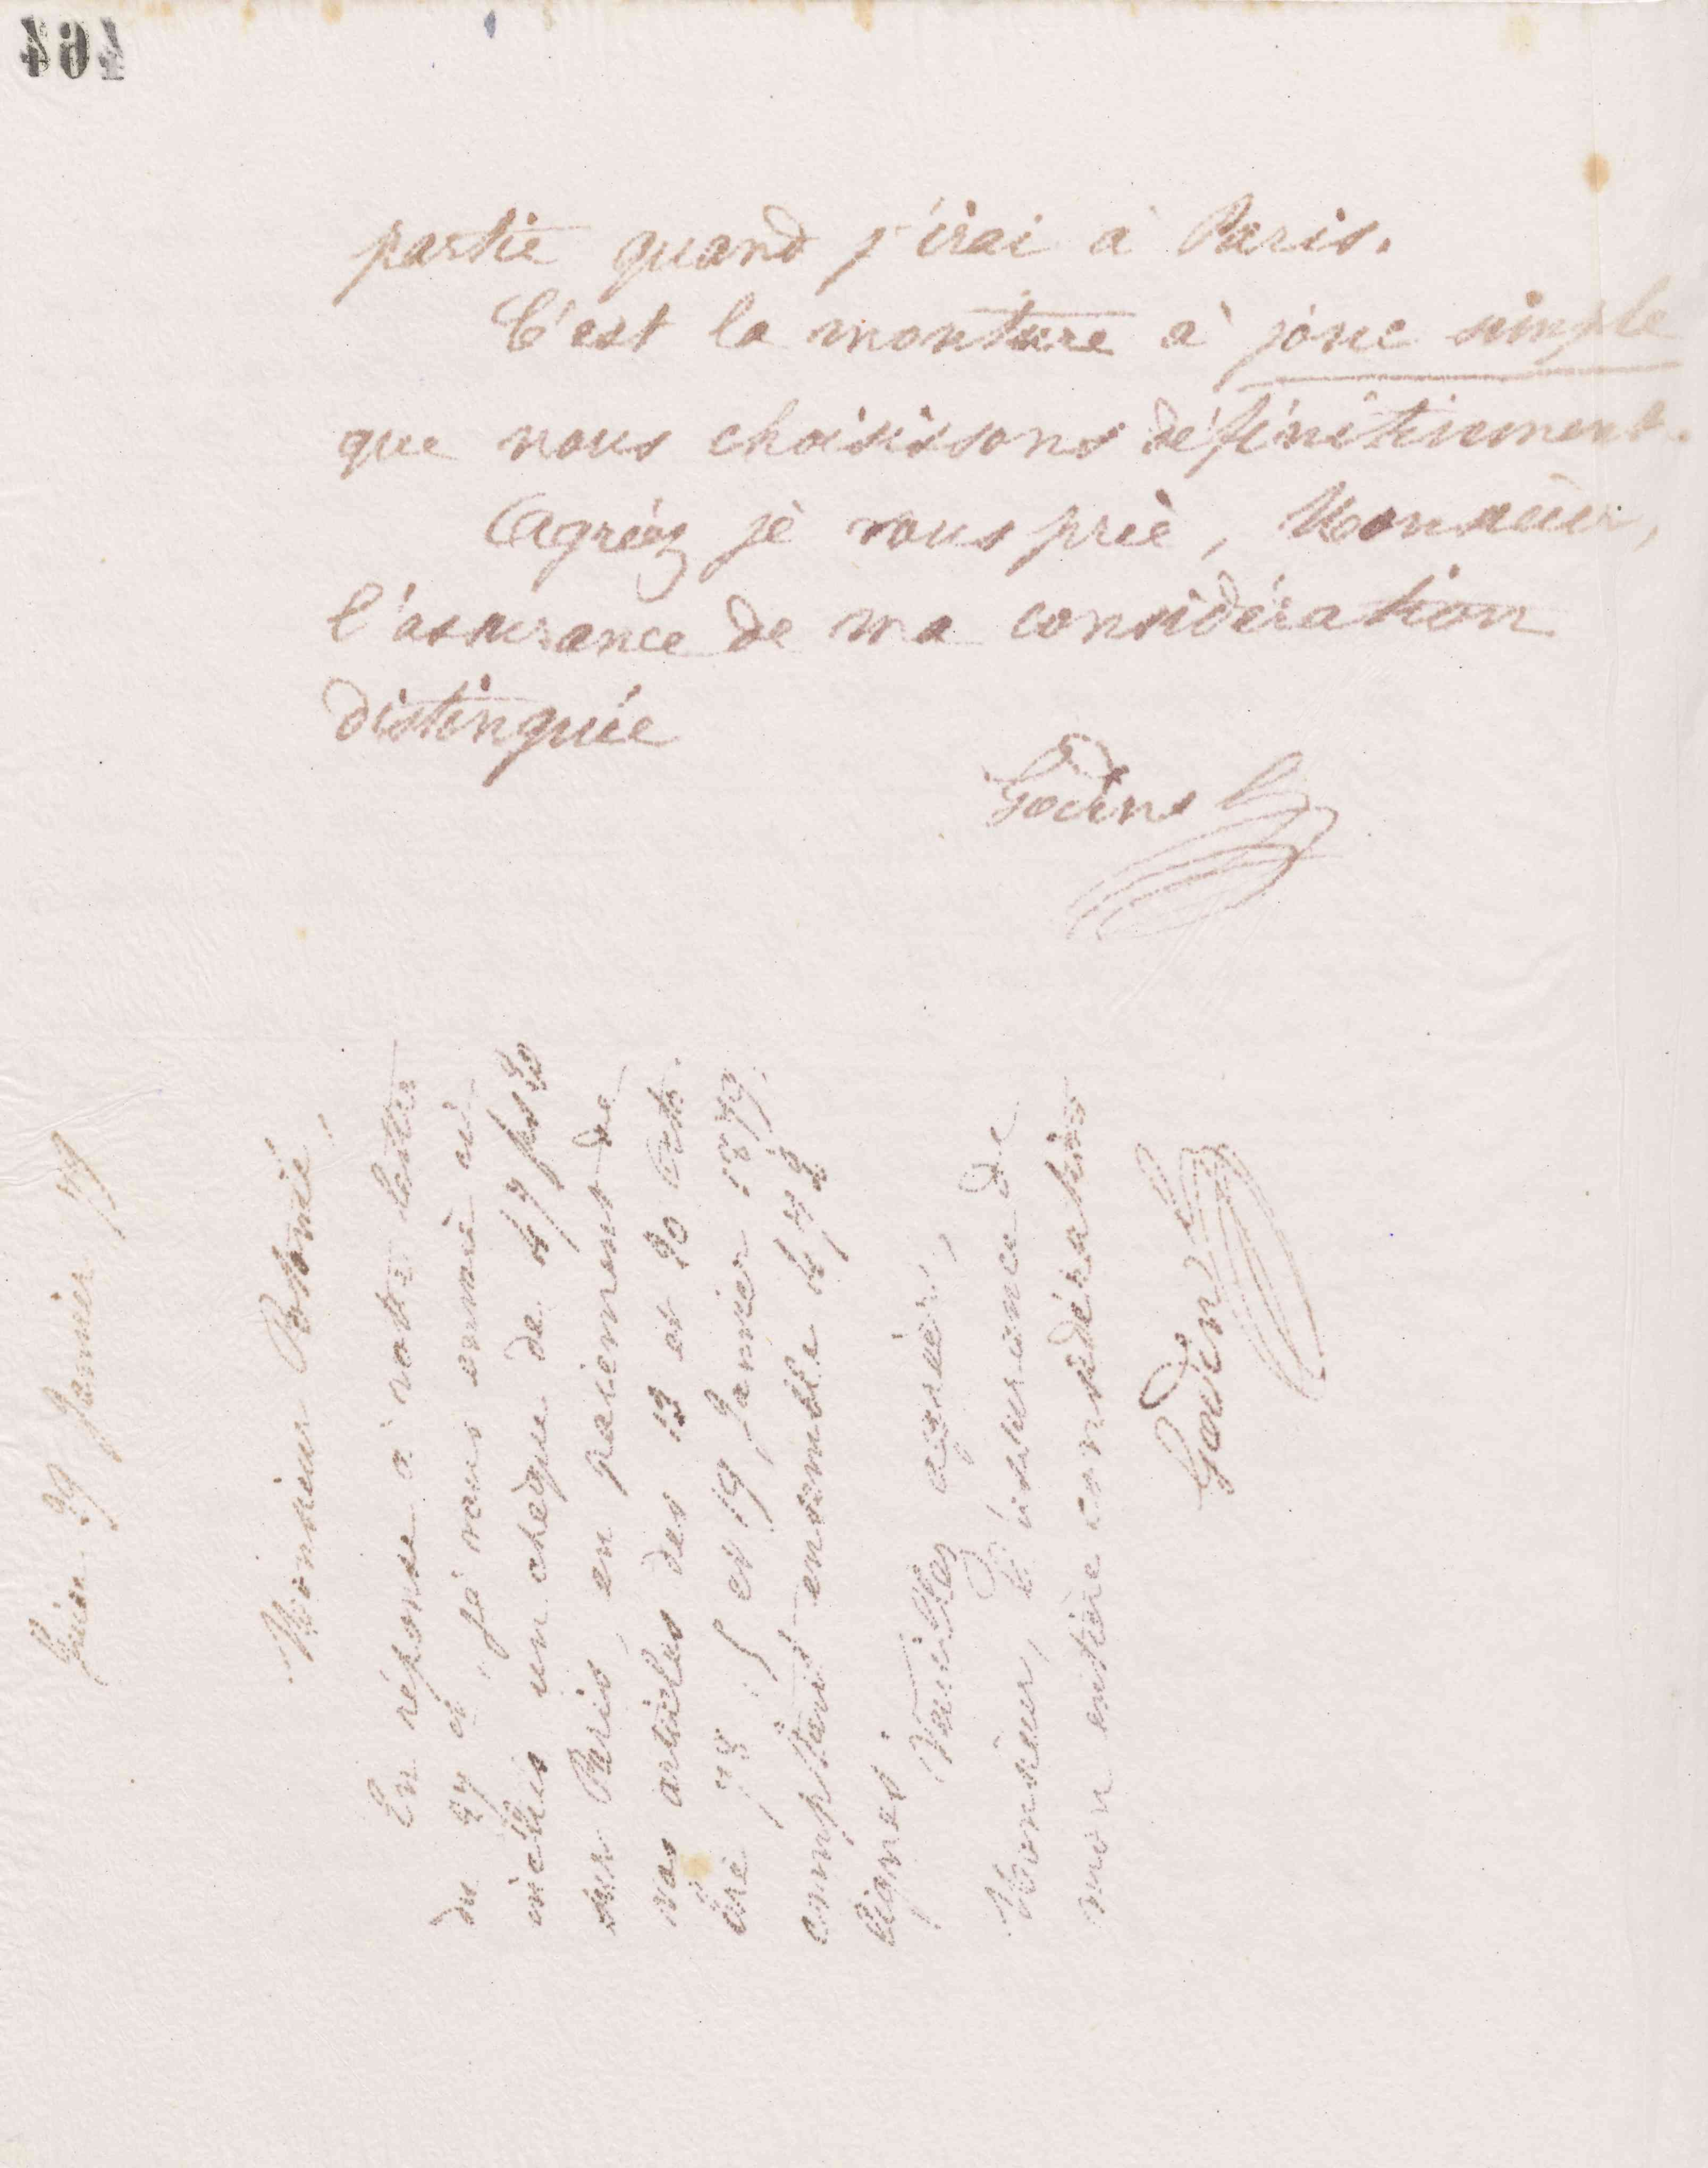 464
partie quand j'irai à Paris.
C'est la monture à jonc simple
que nous choisissons définitivement.
Agréez je vous prie, Monsieur,
l'assurance de ma considération
distinguée
Godin
Guise 29 Janvier 79
Monsieur
En réponse à votre lettre
du 27 et je vous envoie ci-
inclus un chèque de 47 frs 20
sur Paris, en paiement de
vos articles des 13 et 20 Oct.
78 : 5 et 19 Janvier 1879.
comptant ensemble 472
lignes.
Veuillez agréer,
Monsieur, l'assurance de
mon entière considération
Godin